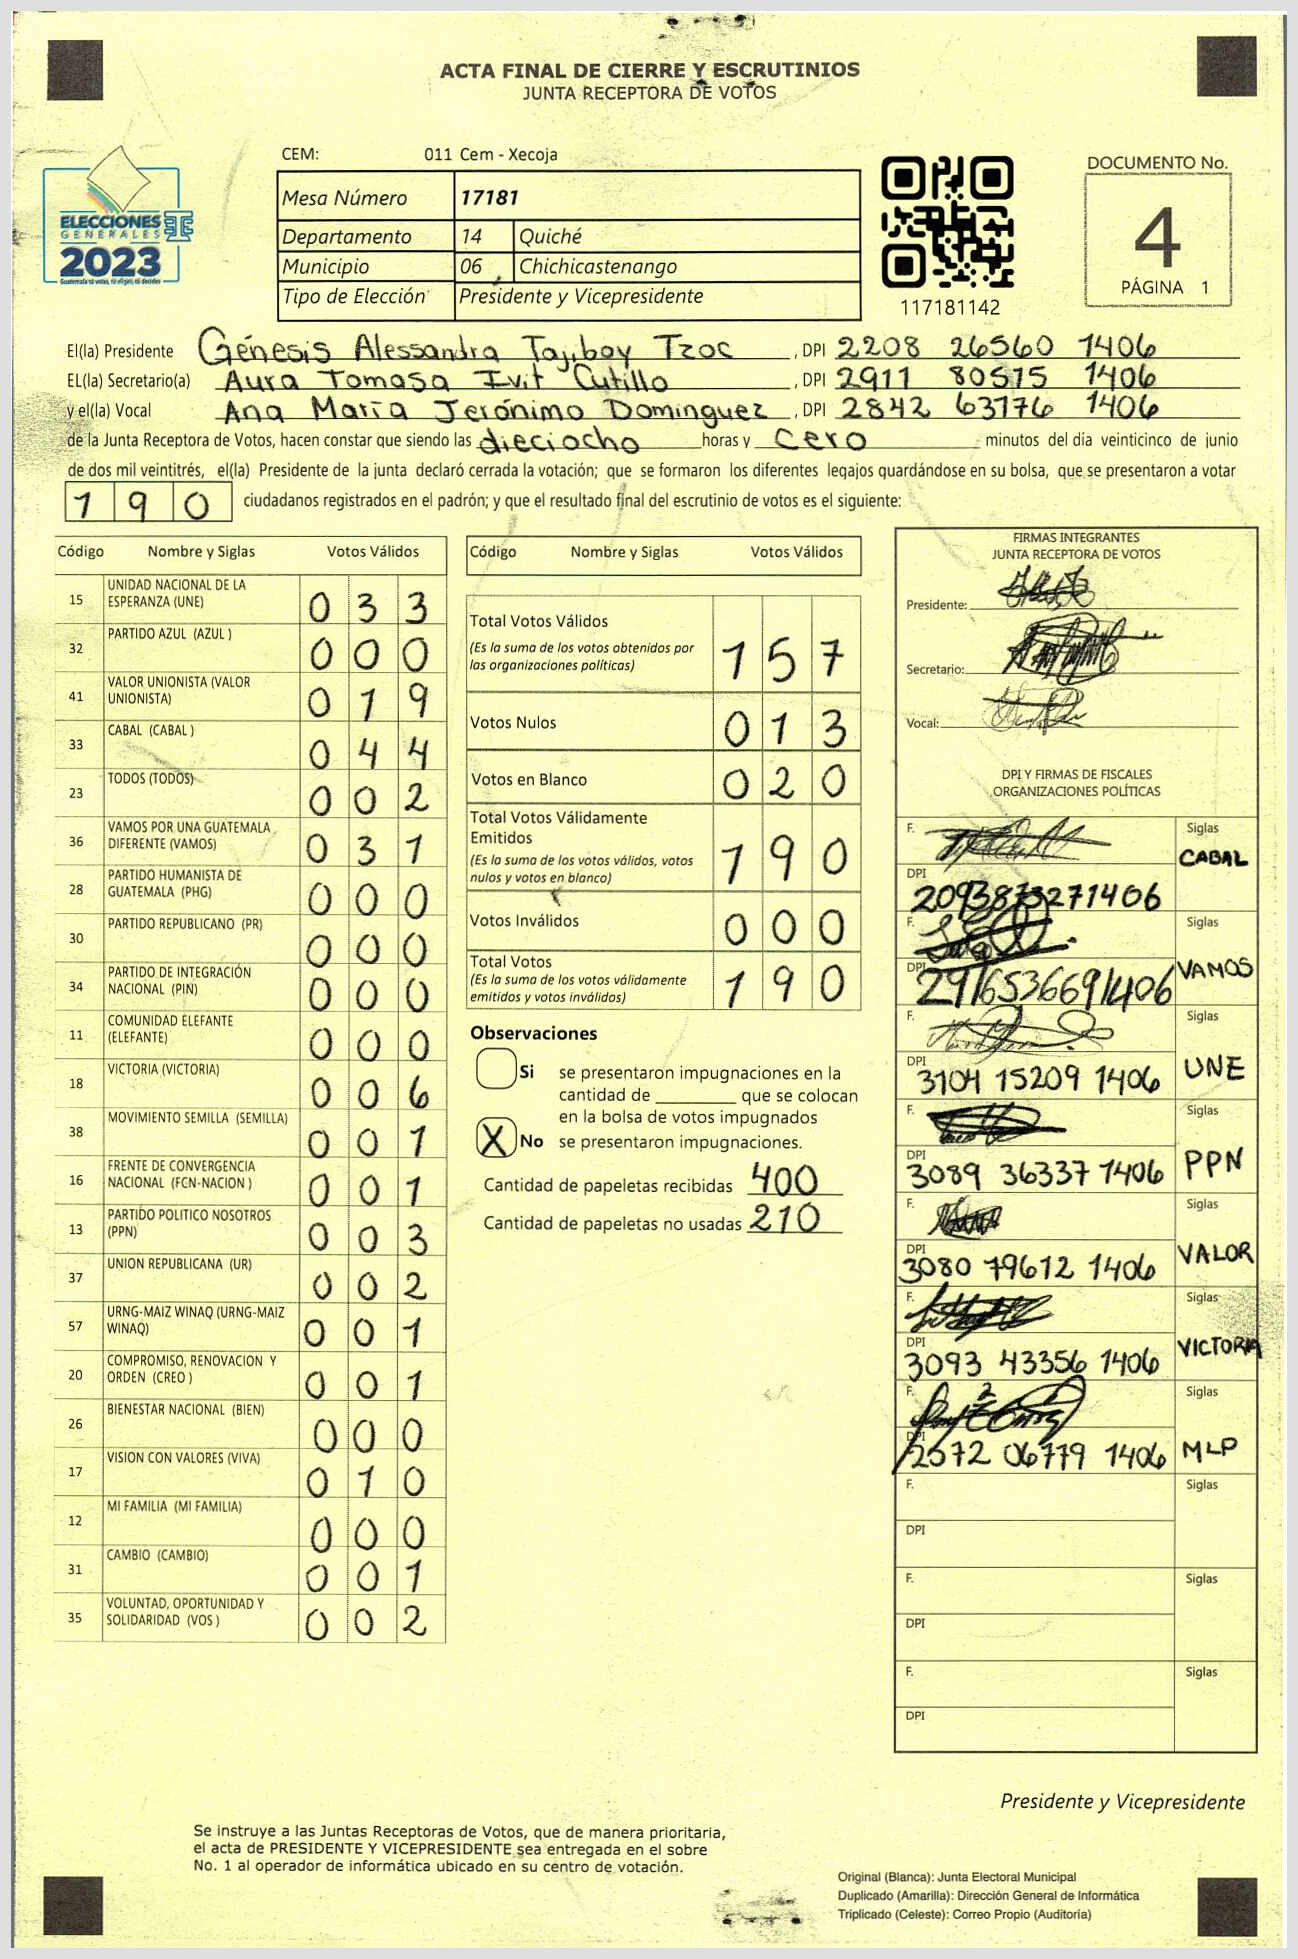 ACTA FINAL DE CIERRE Y ESCRUTINIOS
JUNTA RECEPTORA DE VOTOS
ELECCIONES
GENERALES
2023
Guatemala tú votas, tú eliges, tú decides
CEM: 011 Cem - Xecoja
Mesa Número 17181
Departamento 14 Quiché
Municipio 06 Chichicastenango
Tipo de Elección Presidente y Vicepresidente
117181142
DOCUMENTO No.
4
PÁGINA 1
El(la) Presidente Génesis Alessandra Tajiboy Tzoc, DPI 2208 26560 1406
EL(la) Secretario(a) Aura Tomasa Ivit Cutillo, DPI 2911 80515 1406
y el(la) Vocal Ana María Jerónimo Dominguez, DPI 2842 63176 1406
de la Junta Receptora de Votos, hacen constar que siendo las dieciocho horas y cero minutos del día veinticinco de junio
de dos mil veintitrés, el(la) Presidente de la junta declaró cerrada la votación; que se formaron los diferentes legajos guardándose en su bolsa, que se presentaron a votar
190 ciudadanos registrados en el padrón; y que el resultado final del escrutinio de votos es el siguiente:
Código Nombre y Siglas Votos Válidos
15 UNIDAD NACIONAL DE LA ESPERANZA (UNE) 033
32 PARTIDO AZUL (AZUL ) 000
41 VALOR UNIONISTA (VALOR UNIONISTA) 019
33 CABAL (CABAL ) 044
23 TODOS (TODOS) 002
36 VAMOS POR UNA GUATEMALA DIFERENTE (VAMOS) 031
28 PARTIDO HUMANISTA DE GUATEMALA (PHG) 000
30 PARTIDO REPUBLICANO (PR) 000
34 PARTIDO DE INTEGRACIÓN NACIONAL (PIN) 000
11 COMUNIDAD ELEFANTE (ELEFANTE) 000
18 VICTORIA (VICTORIA) 006
38 MOVIMIENTO SEMILLA (SEMILLA) 001
16 FRENTE DE CONVERGENCIA NACIONAL (FCN-NACION ) 001
13 PARTIDO POLITICO NOSOTROS (PPN) 003
37 UNION REPUBLICANA (UR) 002
57 URNG-MAIZ WINAQ (URNG-MAIZ WINAQ) 001
20 COMPROMISO, RENOVACION Y ORDEN (CREO ) 001
26 BIENESTAR NACIONAL (BIEN) 000
17 VISION CON VALORES (VIVA) 010
12 MI FAMILIA (MI FAMILIA) 000
31 CAMBIO (CAMBIO) 001
35 VOLUNTAD, OPORTUNIDAD Y SOLIDARIDAD (VOS ) 002
Código Nombre y Siglas Votos Válidos
Total Votos Válidos
(Es la suma de los votos obtenidos por
las organizaciones políticas) 157
Votos Nulos 013
Votos en Blanco 020
Total Votos Válidamente
Emitidos
(Es la suma de los votos válidos, votos
nulos y votos en blanco) 190
Votos Inválidos 000
Total Votos
(Es la suma de los votos válidamente
emitidos y votos inválidos) 190
Observaciones
Si se presentaron impugnaciones en la
cantidad de ________ que se colocan
en la bolsa de votos impugnados
X No se presentaron impugnaciones.
Cantidad de papeletas recibidas 400
Cantidad de papeletas no usadas 210
FIRMAS INTEGRANTES
JUNTA RECEPTORA DE VOTOS
Presidente:
Secretario:
Vocal:
DPI Y FIRMAS DE FISCALES
ORGANIZACIONES POLÍTICAS
F. Siglas
CABAL
DPI
2093873271406
F. Siglas
VAMOS
DPI
2916536691406
F. Siglas
UNE
DPI
3104 15209 1406
F. Siglas
PPN
DPI
3089 36337 1406
F. Siglas
VALOR
DPI
3080 79612 1406
F. Siglas
VICTORIA
DPI
3093 43356 1406
F. Siglas
MLP
DPI
2572 06779 1406
F. Siglas
DPI
F. Siglas
DPI
F. Siglas
DPI
Presidente y Vicepresidente
Se instruye a las Juntas Receptoras de Votos, que de manera prioritaria,
el acta de PRESIDENTE Y VICEPRESIDENTE sea entregada en el sobre
No. 1 al operador de informática ubicado en su centro de votación.
Original (Blanca): Junta Electoral Municipal
Duplicado (Amarilla): Dirección General de Informática
Triplicado (Celeste): Correo Propio (Auditoría)